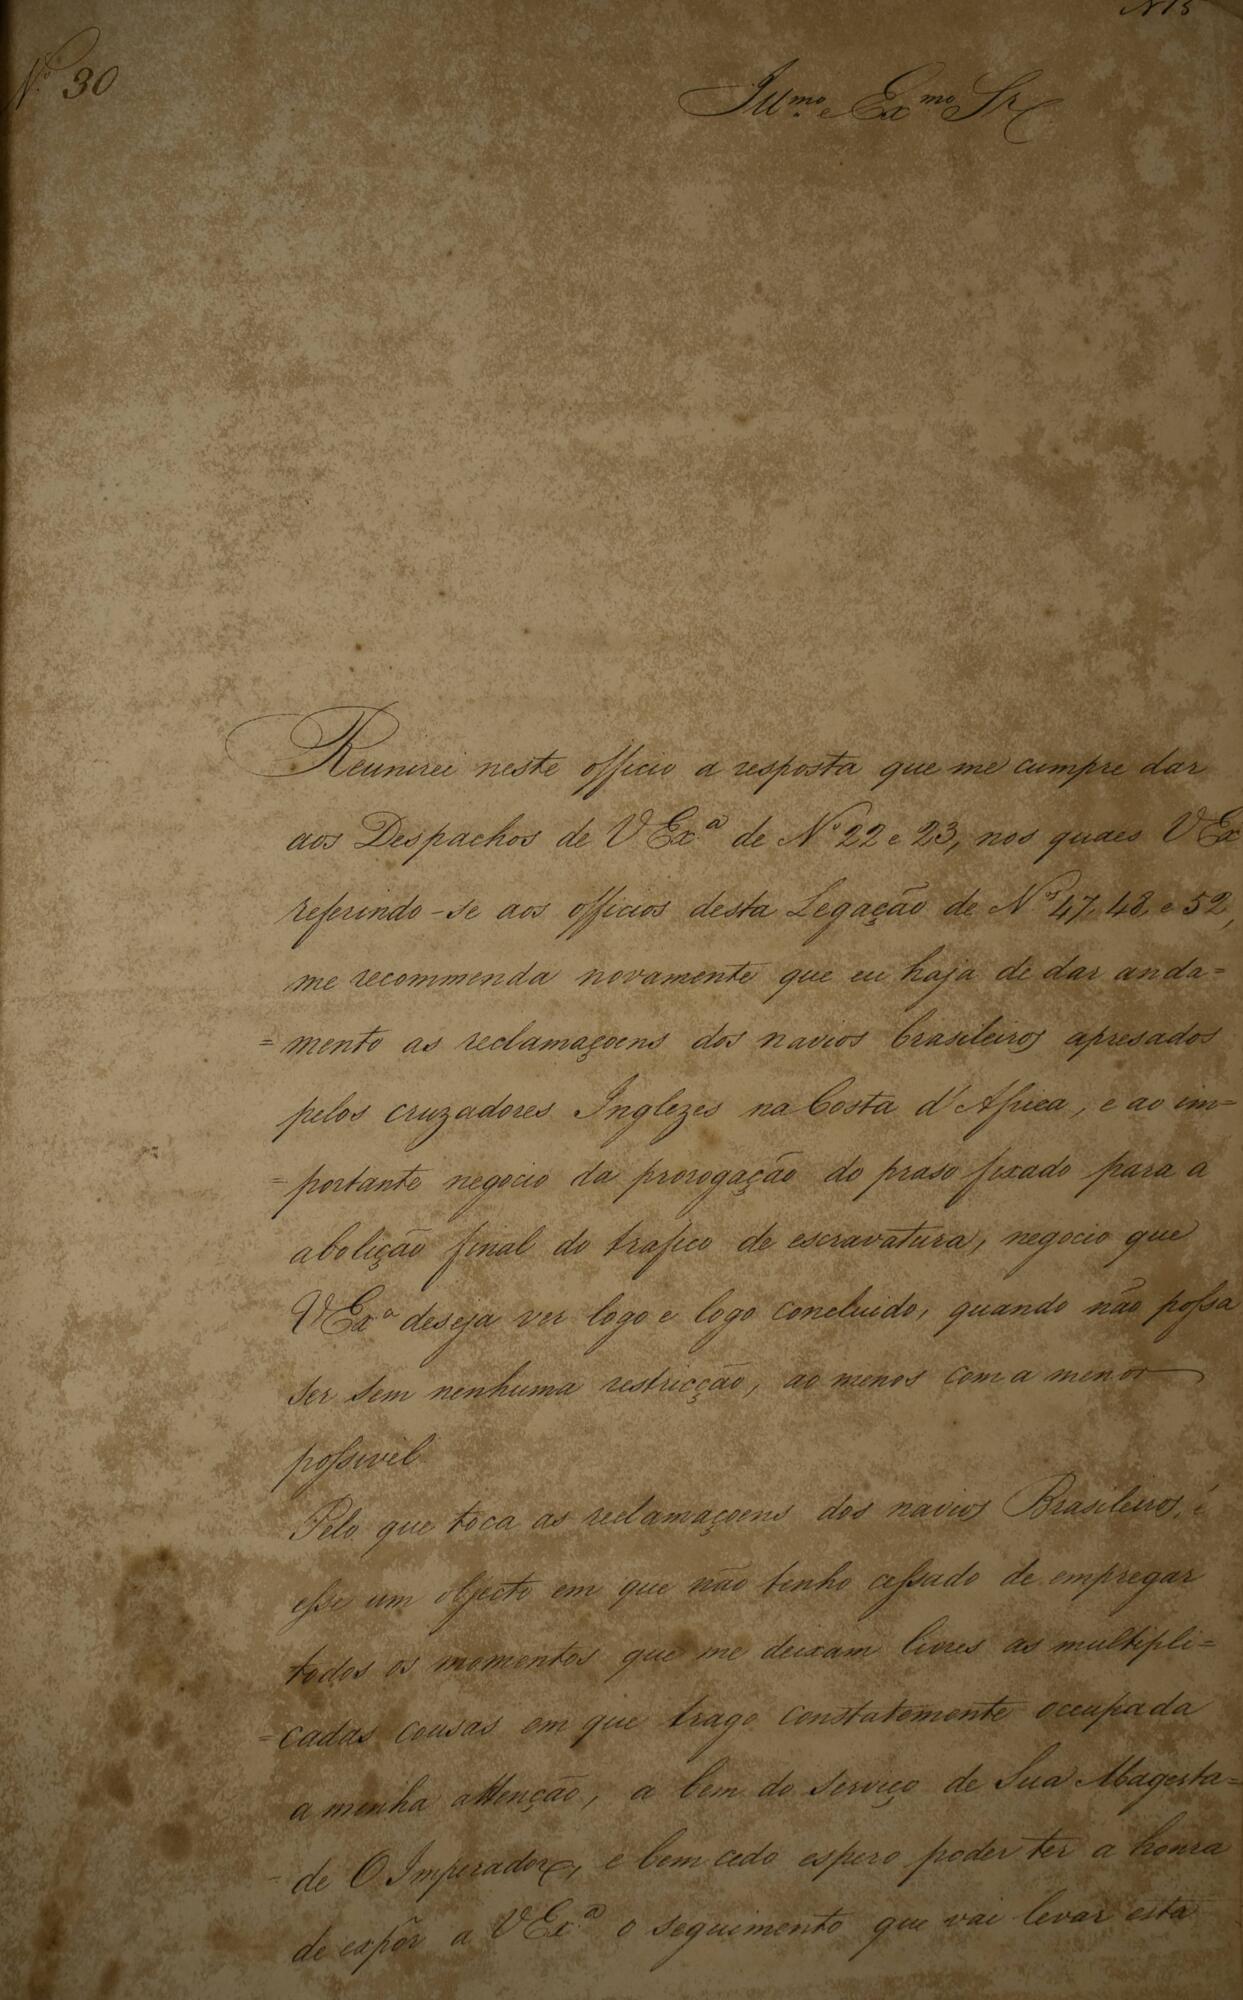 N 15
N.º 30
Illmo. e Exmo Sr
Reunirei neste officio a resposta que me cumpre dar
aos Despachos de V Exª de Nº 22 e 23, nos quaes V Ex
referindo-se aos officios desta Legação de Nos 47, 48, e 52,
me recommenda novamente que eu haja de dar anda=
=mento as reclamaçoens dos navios brasileiros apresados
pelos cruzadores Inglezes na Costa d'Africa, e ao im=
=portante negocio da prorogação do praso fixado para a
abolição final do trafico de escravatura, negocio que
V Exª deseja ver logo e logo concluido, quando não possa
ser sem nenhuma restricção, ao menos com a menor
possivel
Pelo que toca as reclamaçoens dos navios Brasileiros, é
esse um objecto em que não tenho cessado de empregar
todos os momentos que me deixam livres as multipli=
=cadas cousas em que trago constatemente occupada
a minha attenção, a bem do serviço de Sua Magesta=
de O Imperador, e bem cedo espero poder ter a honra
de expôr a V Exª o seguimento que vai levar esta